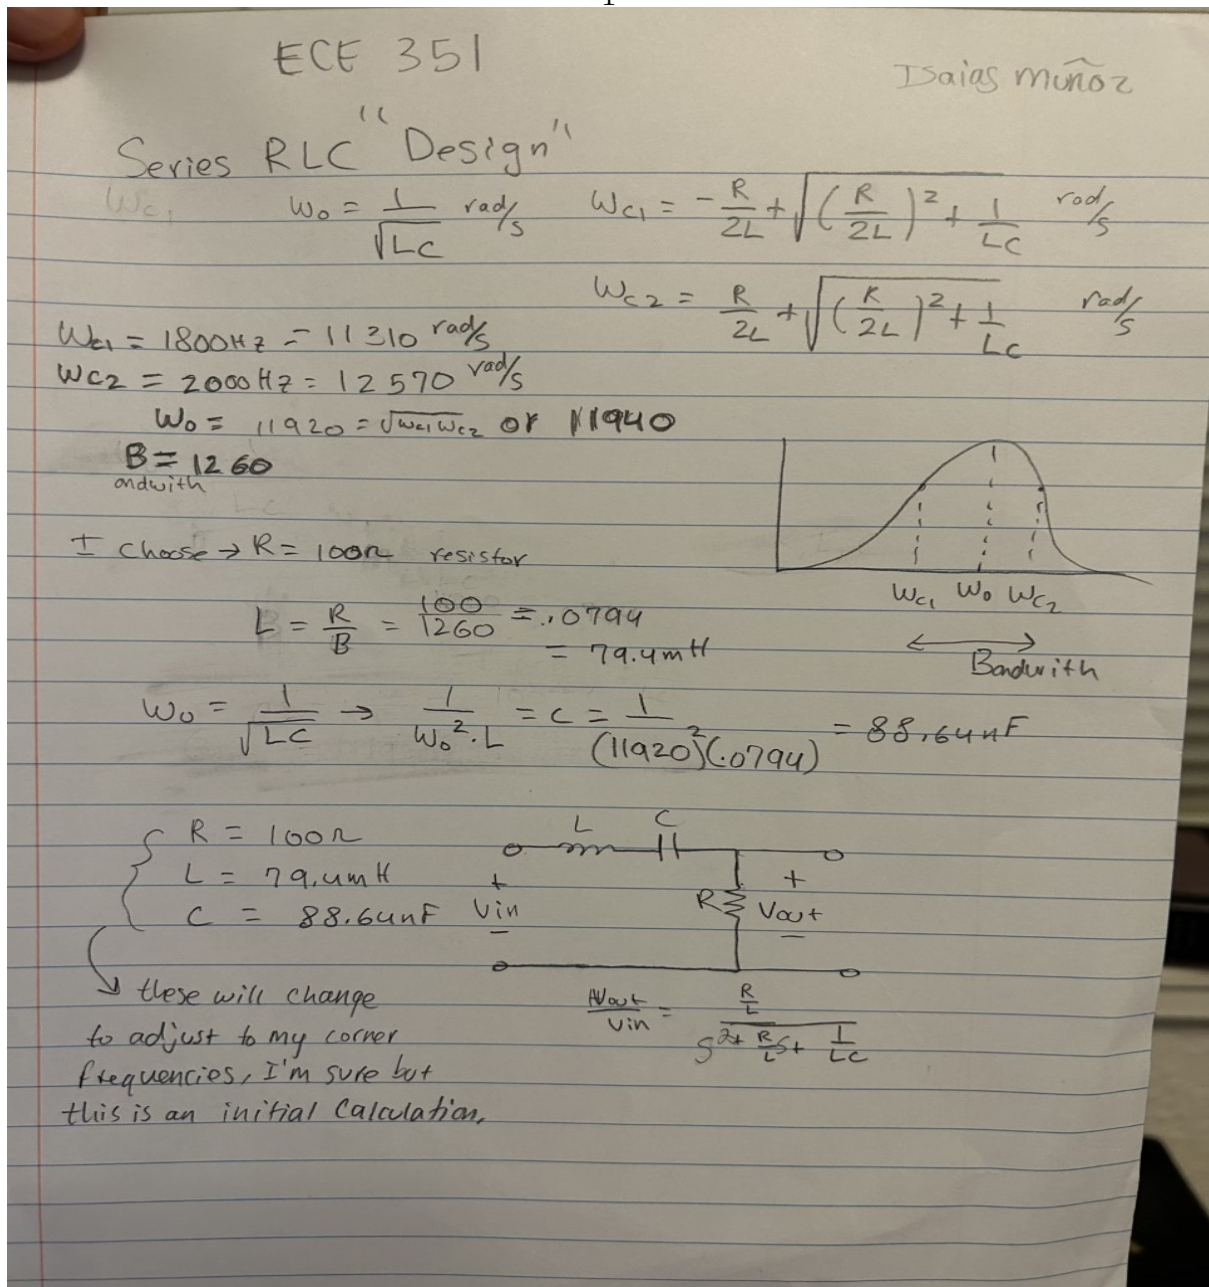 ECE 351
Isaias muñoz
Series RLC "Design"
Wc1
W0 = 1/√LC rad/s
Wc1 = -R/2L + √((R/2L)² + 1/LC) rad/s
Wc2 = R/2L + √((R/2L)² + 1/LC) rad/s
Wc1 = 1800Hz = 11310 rad/s
Wc2 = 2000Hz = 12570 rad/s
W0 = 11920 = √Wc1Wc2 or 11940
B = 1260
andwith
I choose → R = 100Ω resistor
Wc1 W0 Wc2
Bandwith
L = R/B = 100/1260 = .0794
= 79.4mH
W0 = 1/√LC → 1/W0²·L = C = 1/(11920)²(.0794) = 88.64nF
R = 100Ω
L = 79.4mH
C = 88.64nF
L C
+ Vin -
R
+ Vout -
these will change
to adjust to my corner
frequencies, I'm sure but
this is an initial Calculation.
Vout/Vin = R/L / S²+ R/L S + 1/LC